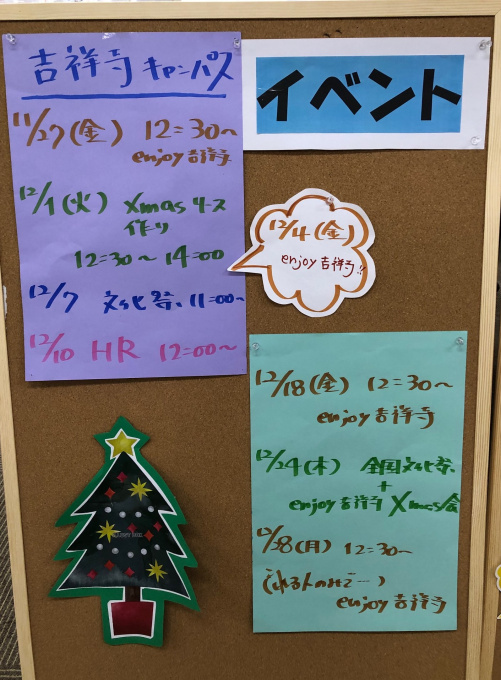 吉祥寺 キャンパス
11/27(金) 12:30~
enjoy 吉祥寺
12/1(火) Xmas リース
作り
12:30~14:00
12/7 文化祭、11:00~
12/10 HR 12:00~
イベント
12/4(金)
enjoy 吉祥寺!!
12/18(金) 12:30~
enjoy 吉祥寺
12/24(木) 全国文化祭
+
enjoy 吉祥寺 Xmas会
12/28(月) 12:30~
enjoy 吉祥寺